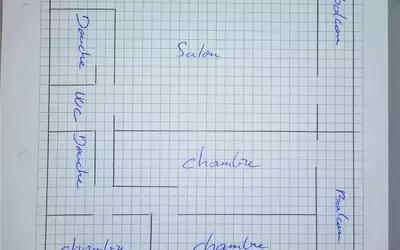 Douche
Salon
Balcon
WC
Douche
chambre
Balcon
chambre
chambre